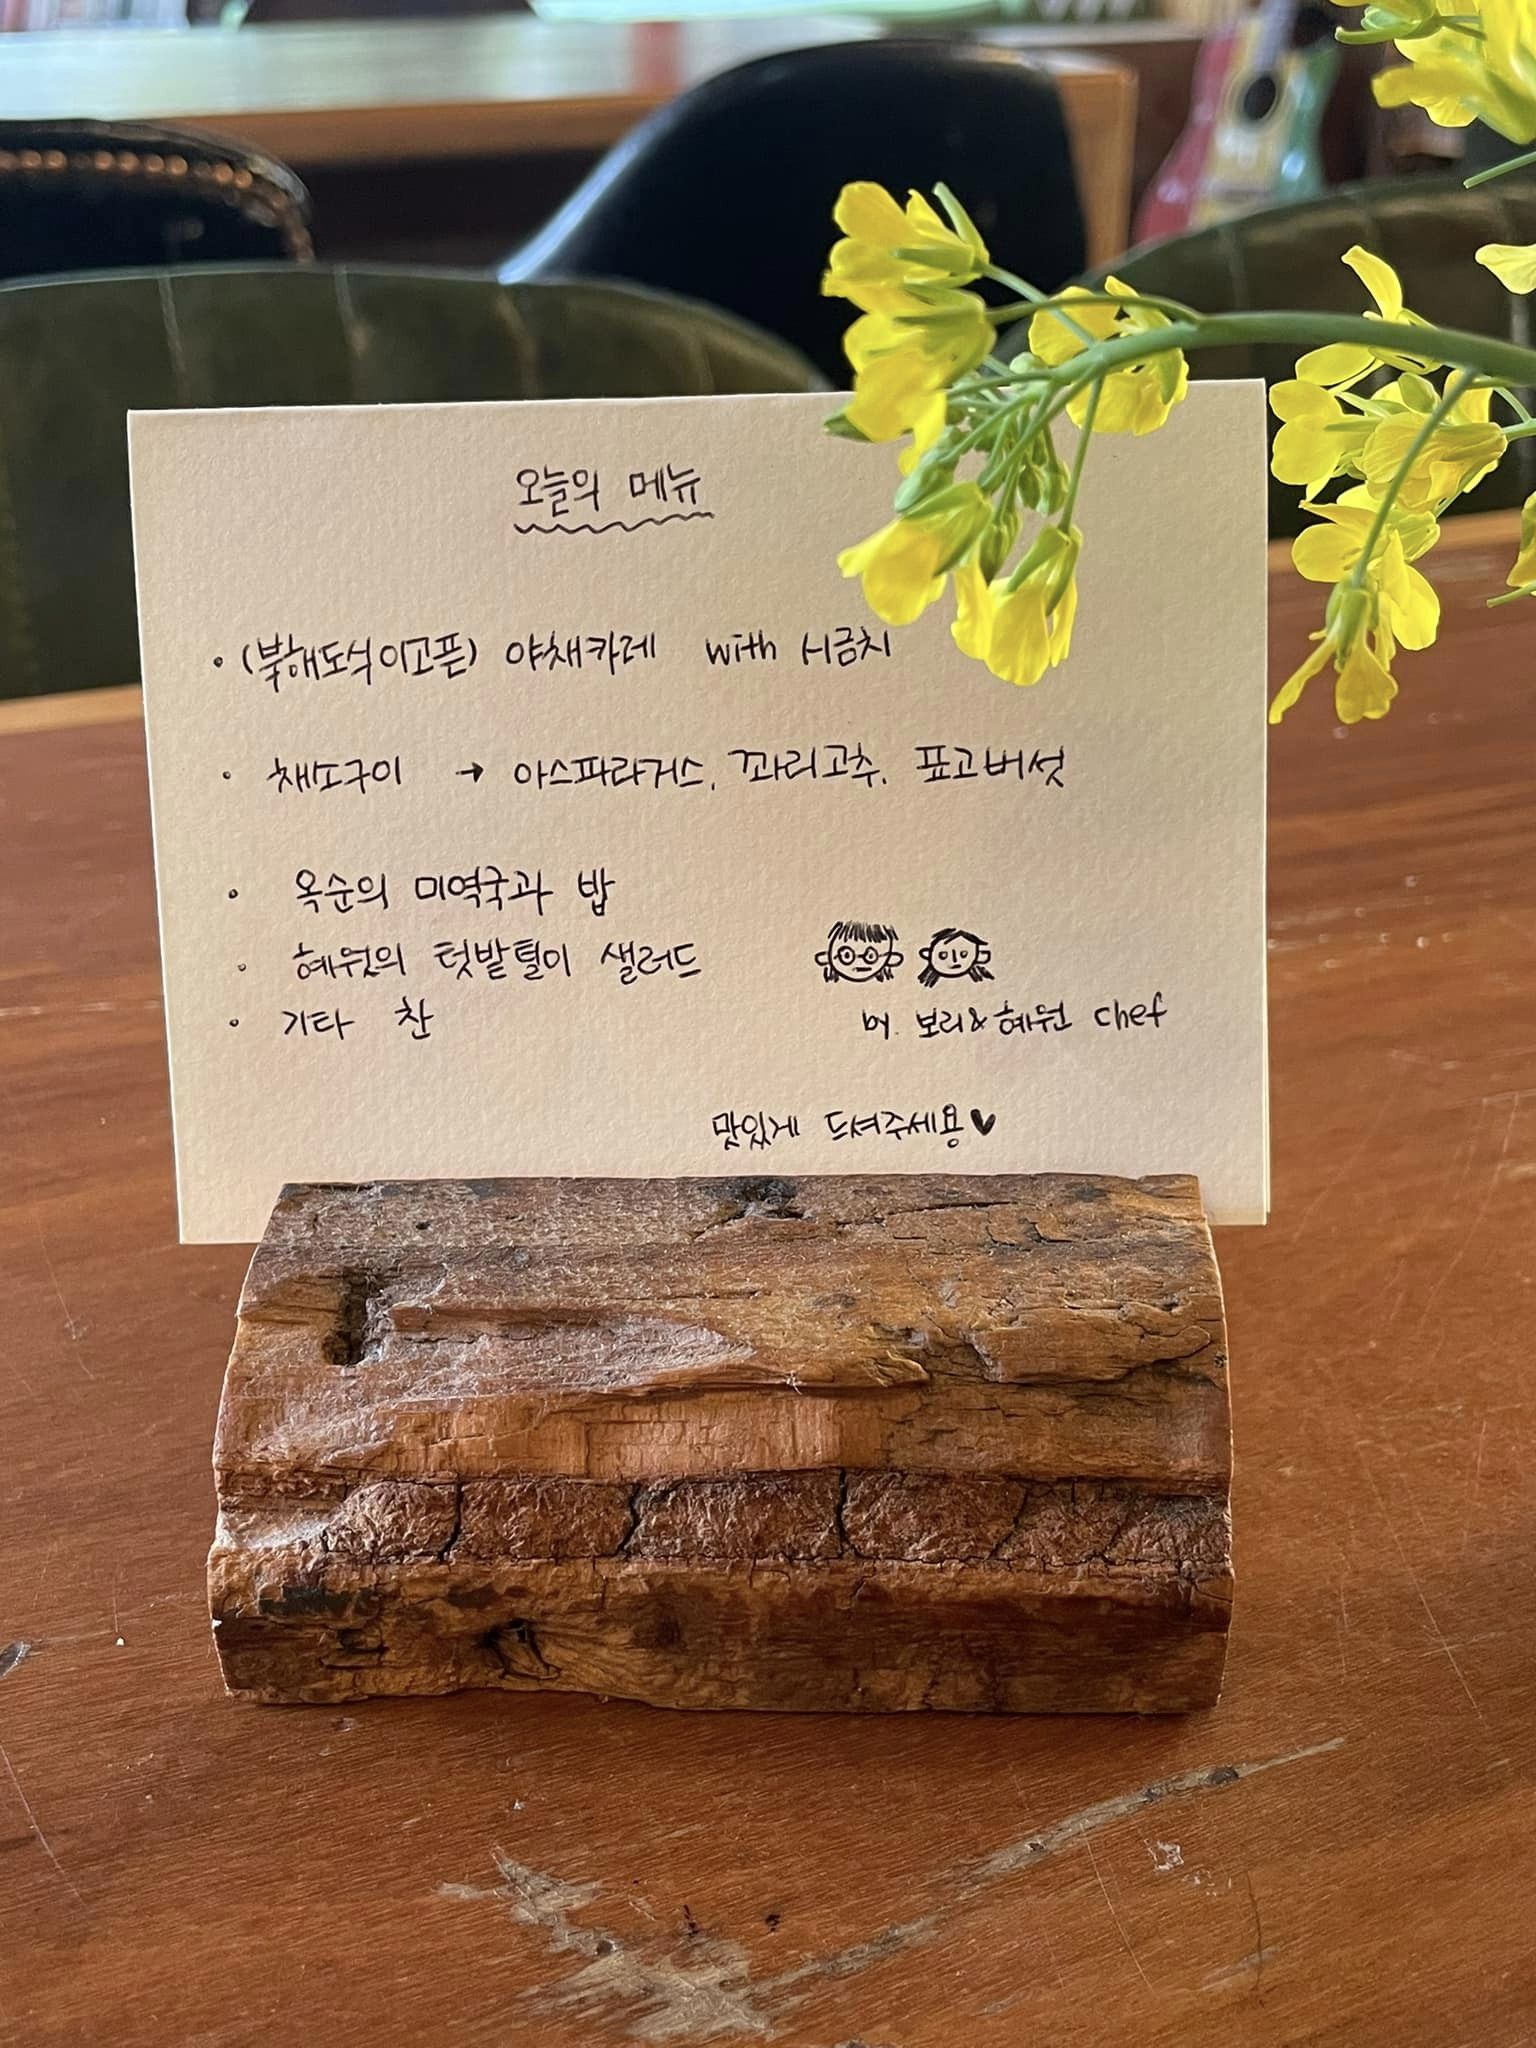 오늘의 메뉴
• (북해도식이고픈) 야채카레 with 시금치
• 채소구이 → 아스파라거스, 꽈리고추, 표고버섯
• 옥순의 미역국과 밥
• 혜원의 텃밭털이 샐러드
• 기타 찬
by. 보리&혜원 chef
맛있게 드셔주세용♥